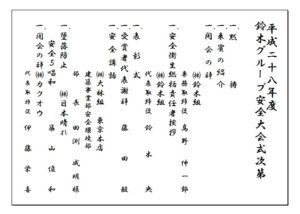 平成二十八年度
鈴木グループ安全大会式次第
一.黙祷
一.来賓の紹介
一.開会の辞
㈱鈴木組
専務取締役 高野 伸一郎
一.安全衛生総括責任者挨拶
㈱鈴木組
代表取締役 鈴木 央
一.表彰式
一.受賞者代表謝辞 藤田 毅
一.安全講話
㈱大林組 東京本店
建築事業部安全環境部
部長 田渕 成明様
一.墜落防止 ㈱日本晴れ
安全5唱和 築山 俊和
一.閉会の辞 ㈱カクオウ
代表取締役 伊藤 栄喜